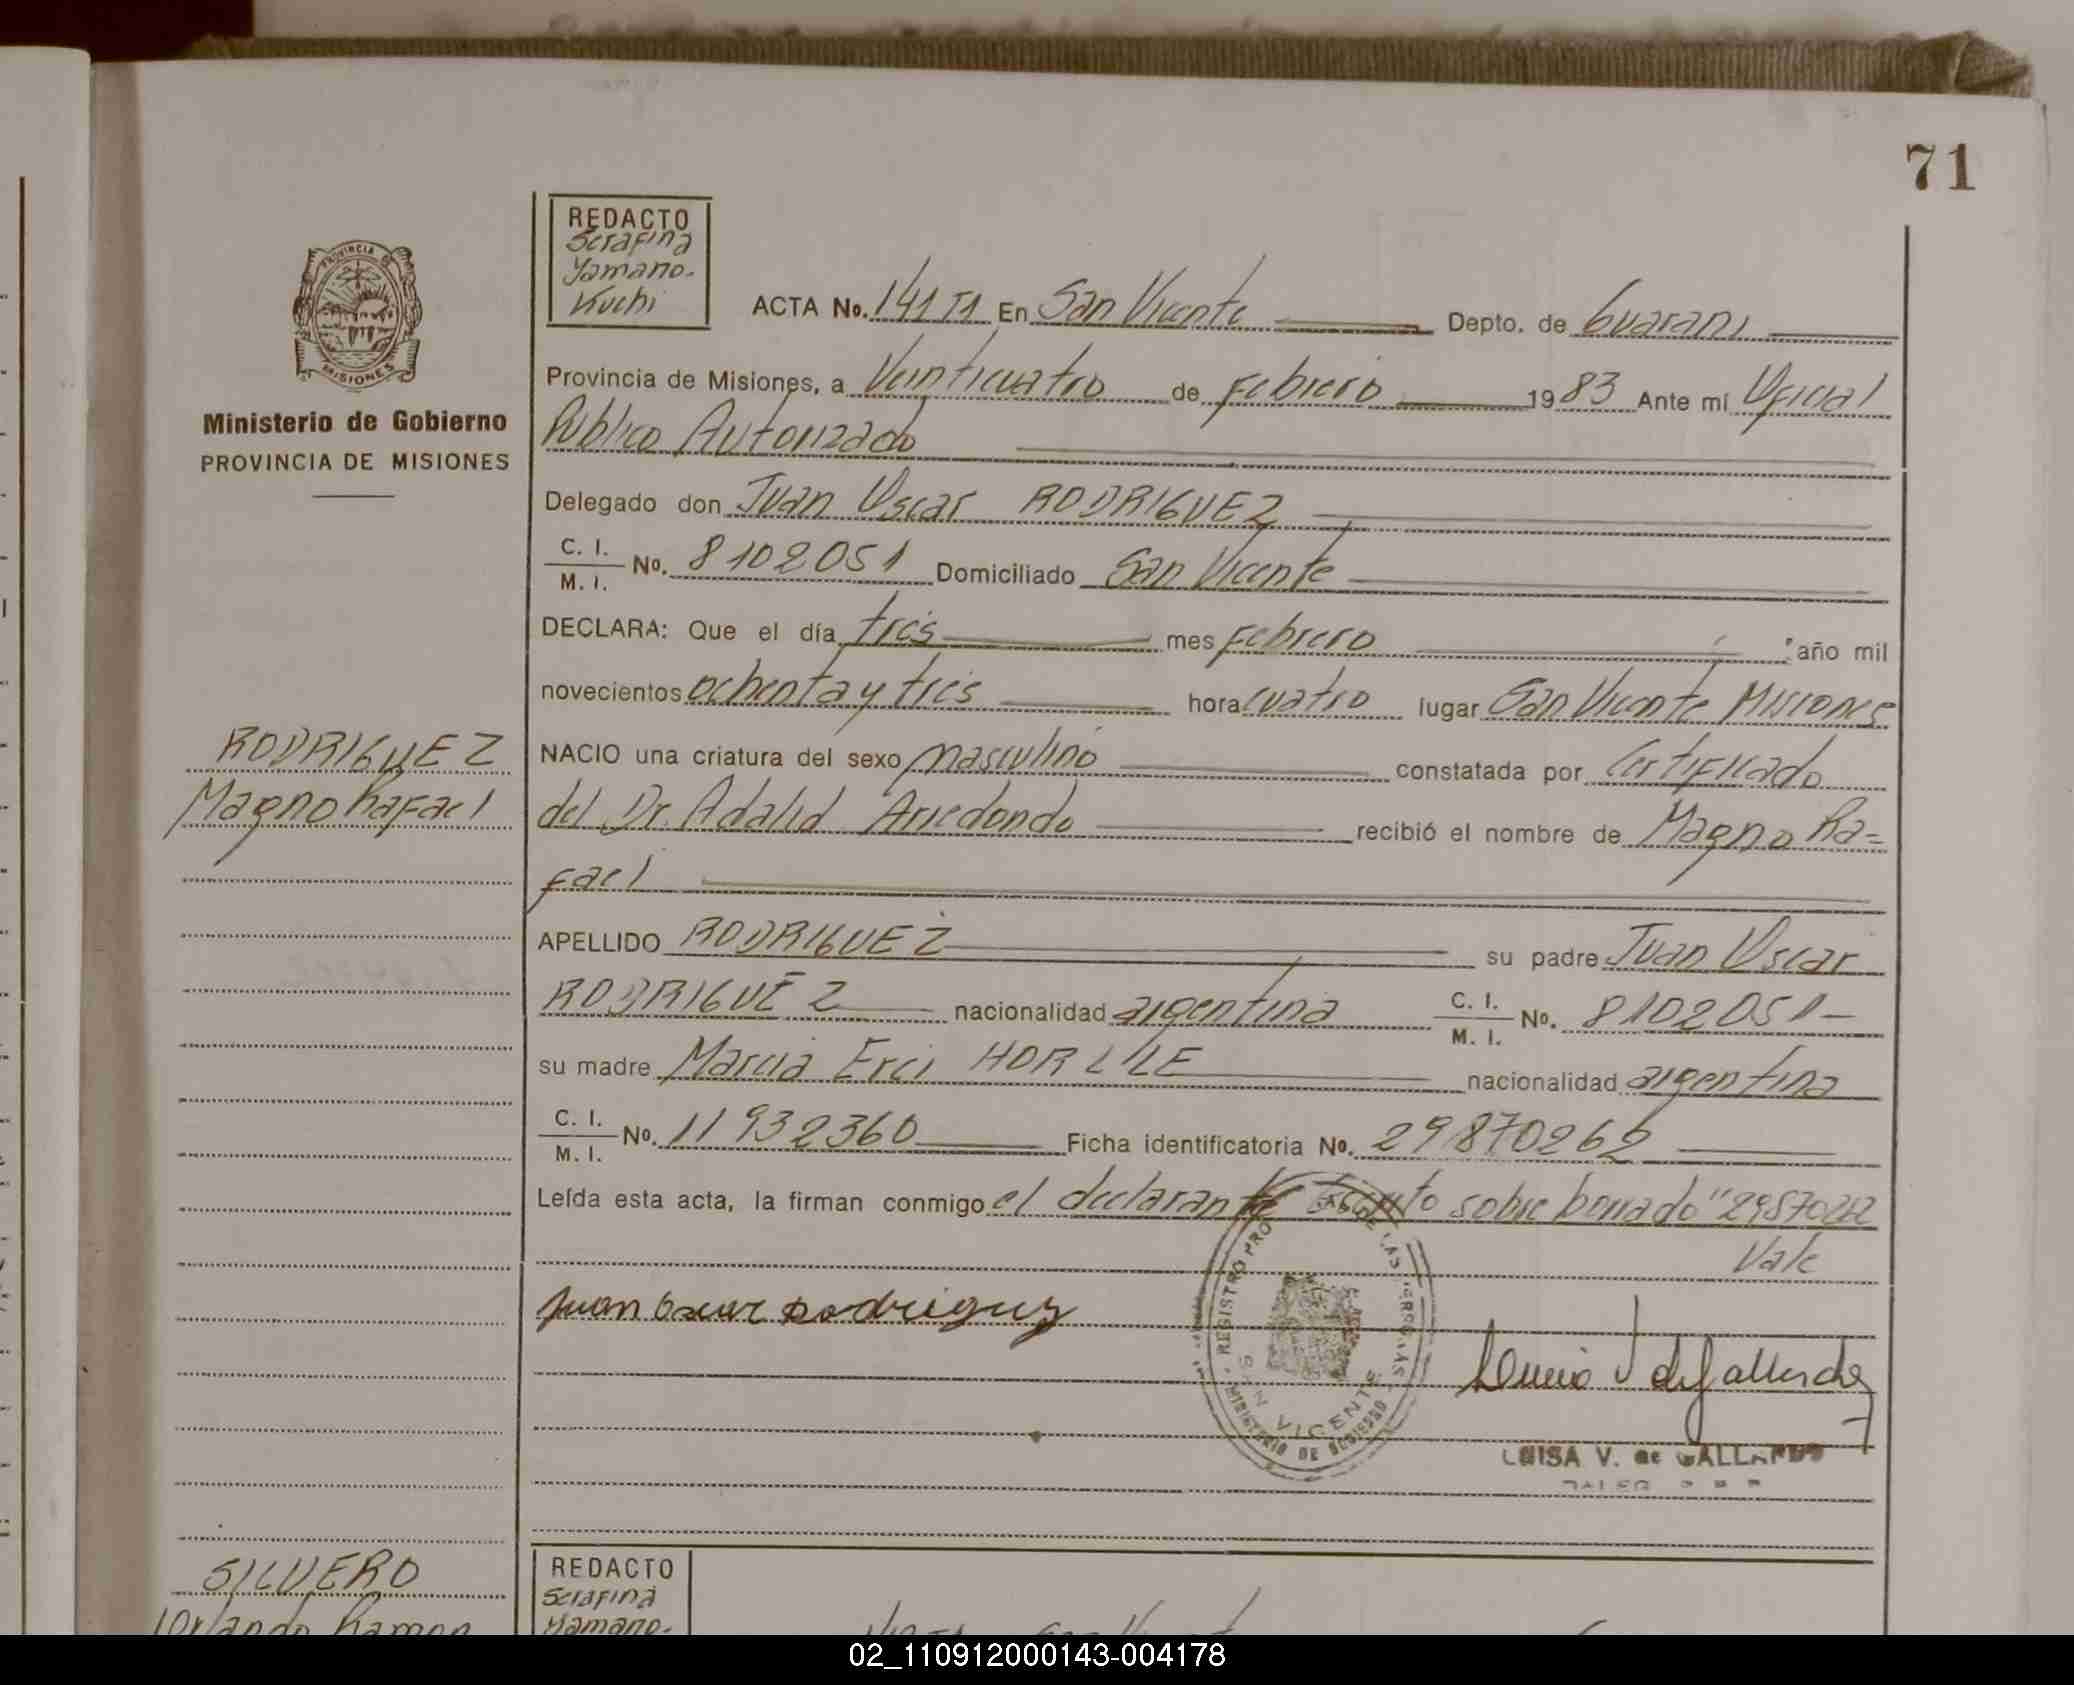 71
REDACTO
Serafina
Yamano-
Kuchi
PROVINCIA DE
MISIONES
Ministerio de Gobierno
PROVINCIA DE MISIONES
ACTA No. 141 T1 En San Vicente Depto. de Guarani
Provincia de Misiones, a Veinticuatro de Febrero 1983 Ante mí Oficial
Público Autorizado
Delegado don Juan Oscar RODRIGUEZ
C. I. / M. I. No. 8102051 Domiciliado San Vicente
DECLARA: Que el día tres mes Febrero año mil
novecientos ochenta y tres hora cuatro lugar San Vicente Misiones
NACIO una criatura del sexo masculino constatada por Certificado
del Dr. Adalid Arredondo recibió el nombre de Magno Ra=
fael
RODRIGUEZ
Magno Rafael
APELLIDO RODRIGUEZ su padre Juan Oscar
RODRIGUEZ nacionalidad argentina C. I. / M. I. No. 8102051-
su madre Marcia Erci nacionalidad argentina
C. I. / M. I. No. 11932360 Ficha identificatoria No. 29870262
Leída esta acta, la firman conmigo el declarante Escrito sobre borrado "29870262
Vale
Juan Oscar Rodriguez
REGISTRO PROVINCIAL DE LAS PERSONAS
SAN VICENTE
MINISTERIO DE GOBIERNO
LUISA V. de GALLARDO
SILVERO
Orlando Ramon
REDACTO
Serafina
Yamano-
02_110912000143-004178